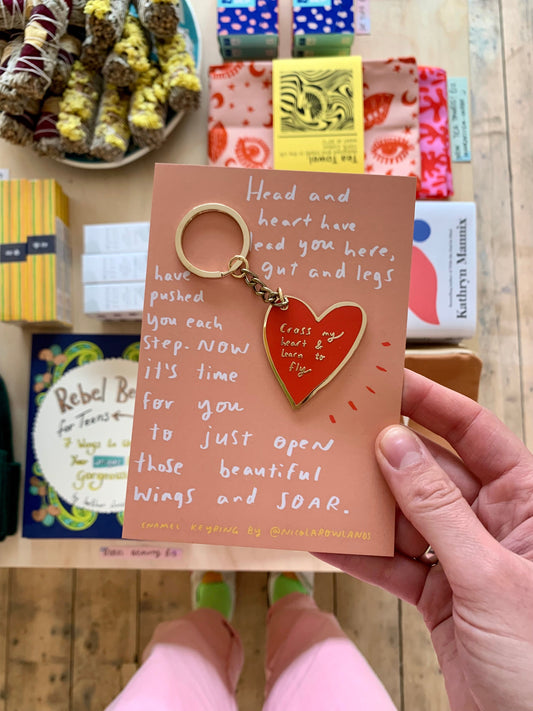 Head and
heart have
lead you here,
gut and legs
have
pushed
you each
step. NOW
it's time
for you
to just open
those beautiful
wings and SOAR.
ENAMEL KEYRING BY @NICOLAROWLANDS
Cross my
heart &
learn to
fly
Tea Towel
Kathryn Mannix
Rebel Be
for Teens
7 Ways to
Your
Gorgeous